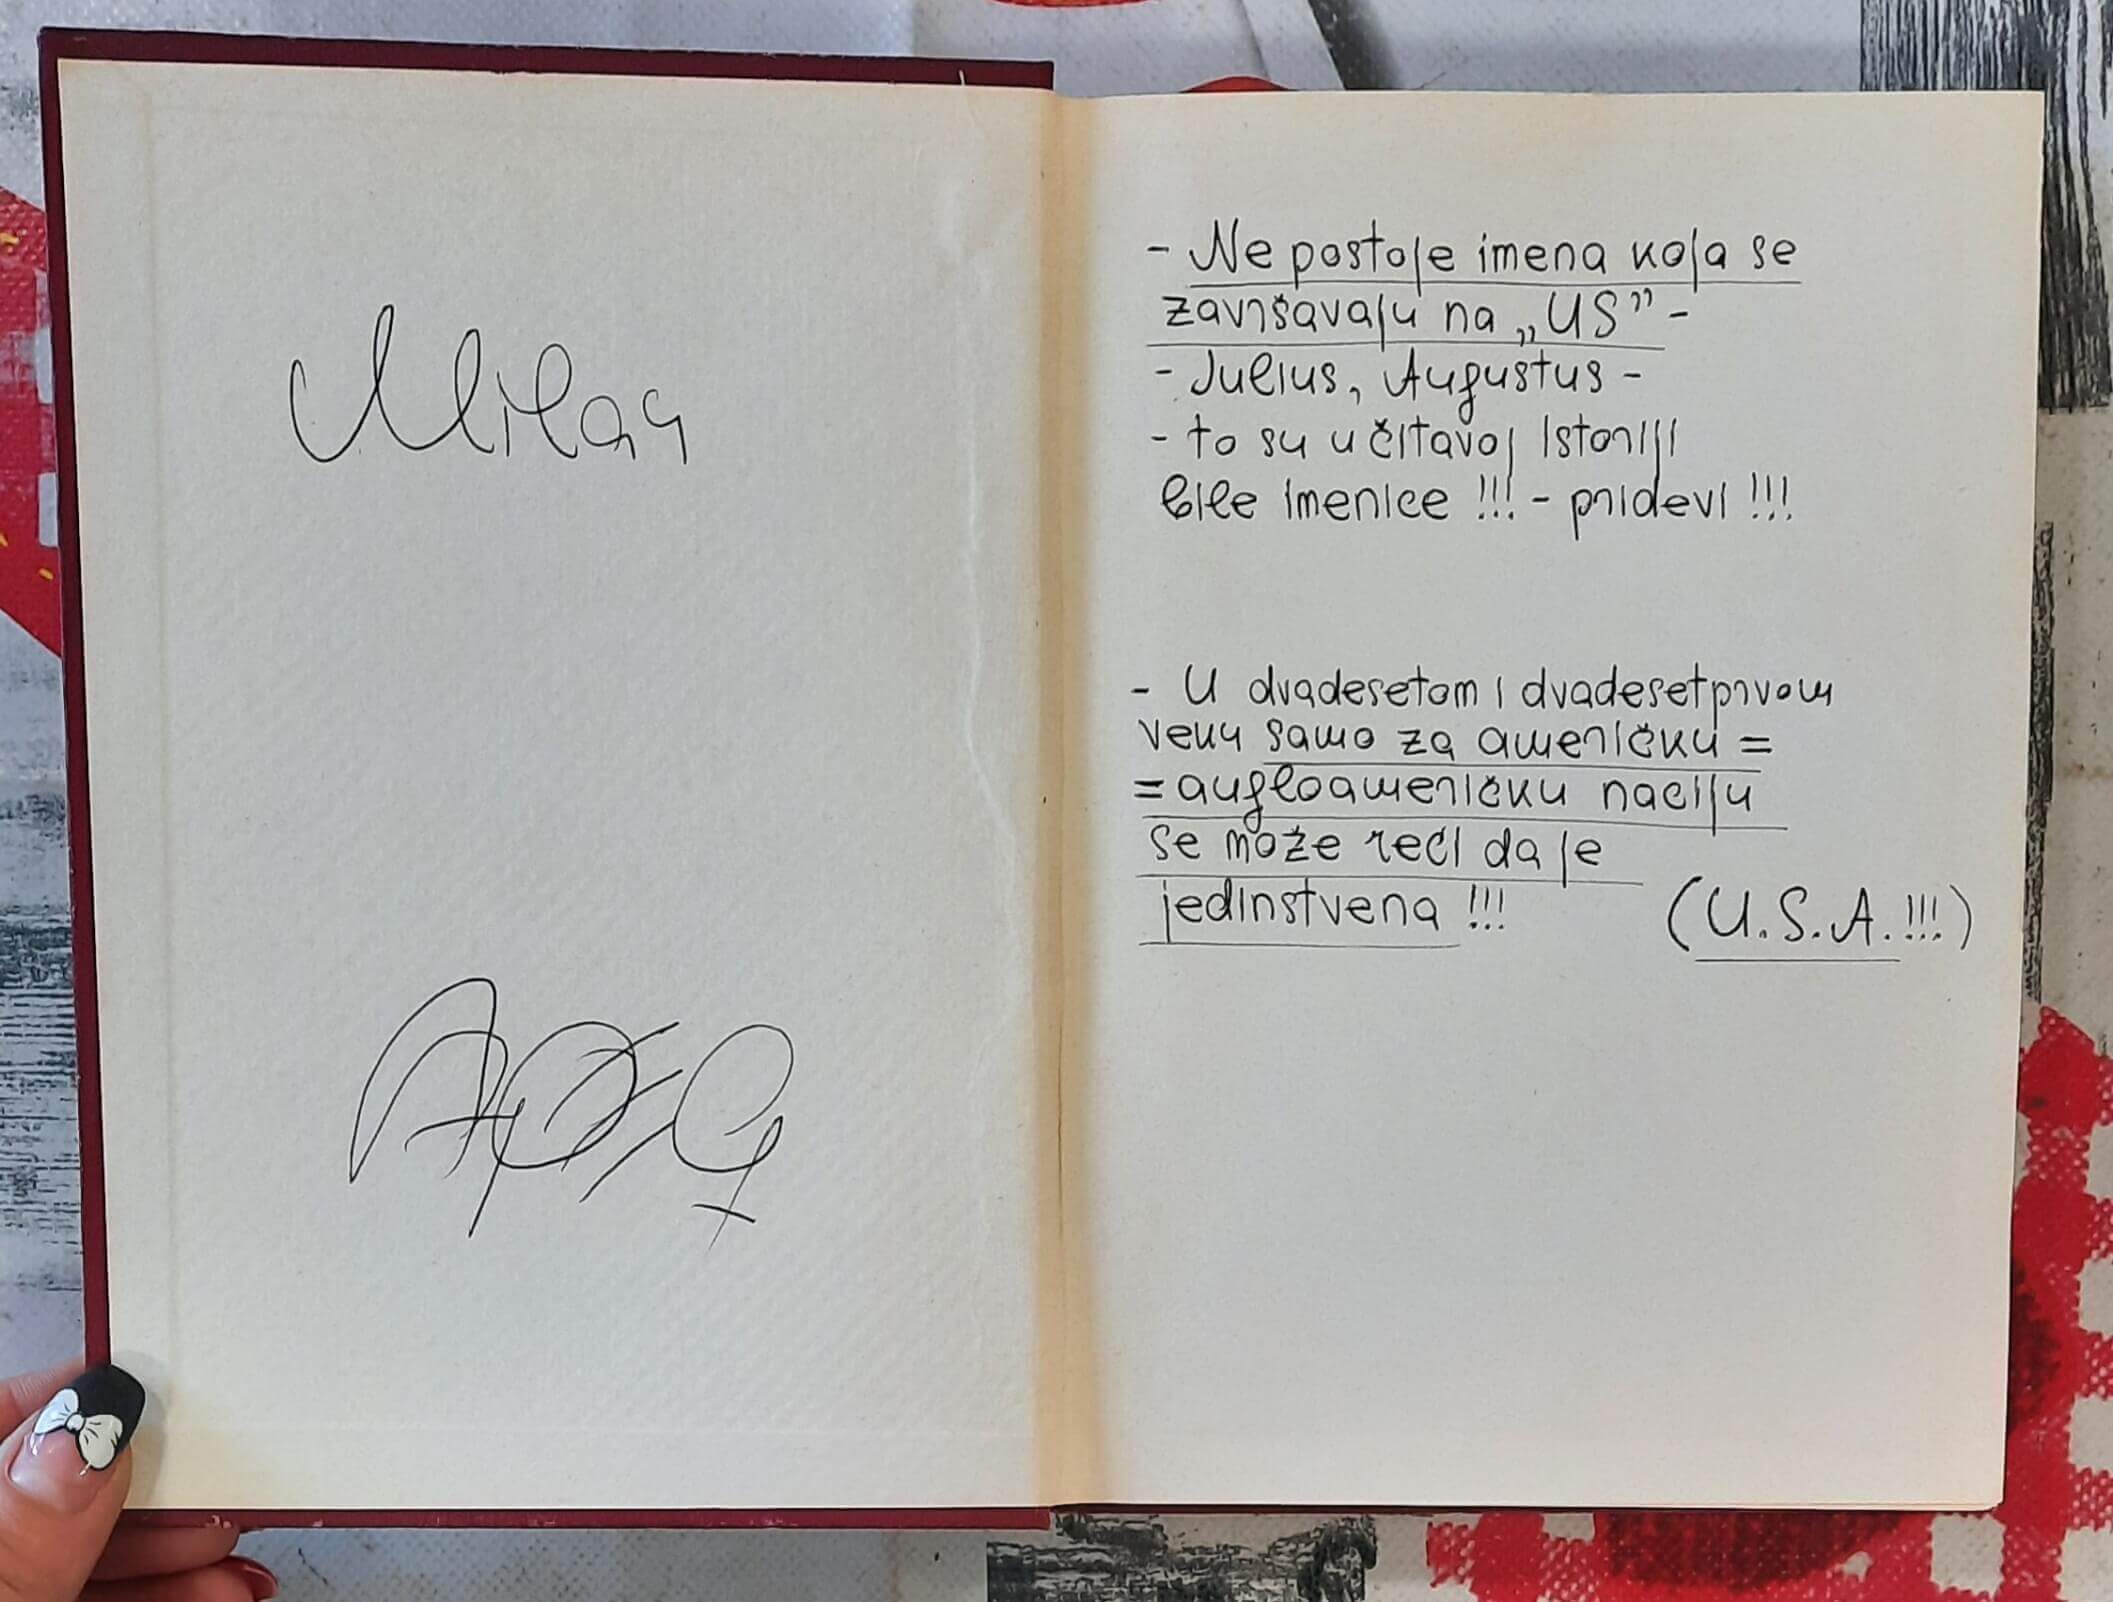 Milan
- Ne postoje imena koja se
završavaju na „US” -
- Julius, Augustus -
- to su u čitavoj istoriji
bile imenice !!! - pridevi !!!
- U dvadesetom i dvadesetprvom
veku samo za američku =
= angloameričku naciju
se može reći da je
jedinstvena !!! (U.S.A.!!!)